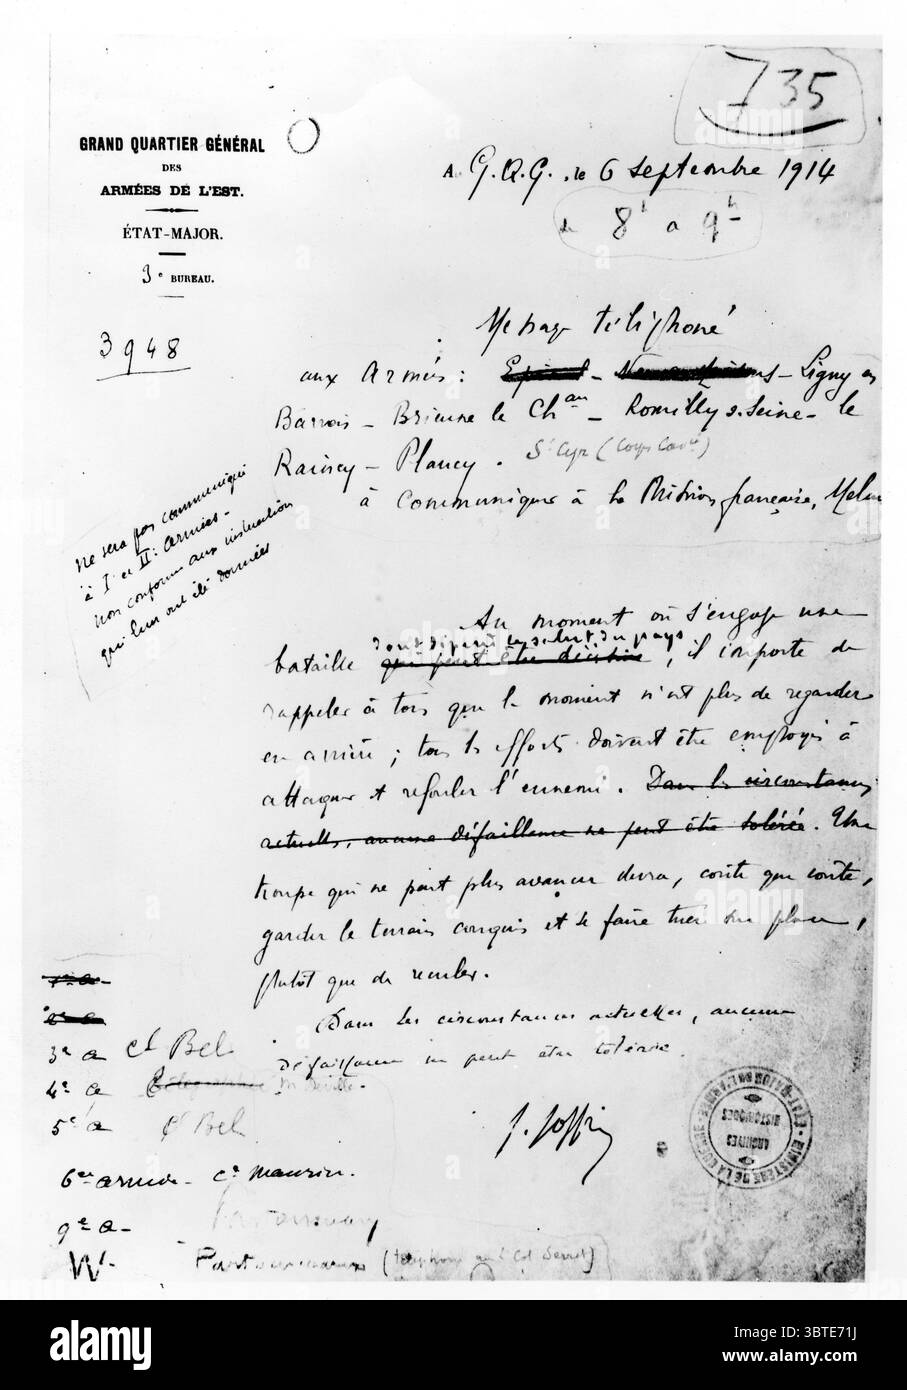 735
GRAND QUARTIER GÉNÉRAL
DES
ARMÉES DE L'EST.
ÉTAT-MAJOR.
3e BUREAU.
3948
A G.Q.G., le 6 septembre 1914
de 8h à 9h
Message téléphoné
aux Armées : Epinal - - Ligny en
Barrois - Brienne le Chau - Romilly s. Seine - le
Raincy - Plancy. St Cyr (Corps Cavie)
à communiquer à la Mission française, Melun
Ne sera pas communiqué
à I et II armées -
non conforme aux instructions
qui leur ont été données
Au moment où s'engage une
dont dépend le salut du pays
bataille qui peut être décisive, il importe de
rappeler à tous que le moment n'est plus de regarder
en arrière ; tous les efforts doivent être employés à
attaquer et refouler l'ennemi. Dans les circonstances
actuelles, aucune défaillance ne peut être tolérée. Une
troupe qui ne peut plus avancer devra, coûte que coûte,
garder le terrain conquis et se faire tuer sur place,
plutôt que de reculer.
Dans les circonstances actuelles, aucune
défaillance ne peut être tolérée.
J. Joffre
1re a
2e a
3e a Ct Bel
4e a
5e a Ct Bel
6e armée - Ce Maurin.
9e a -
W. (téléphone au Col Serret)
MINISTÈRE DE LA GUERRE ÉTAT-MAJOR DE L'ARMÉE
ARCHIVES
HISTORIQUES
alamy
alamy
Image ID: 3BTE71J
www.alamy.com